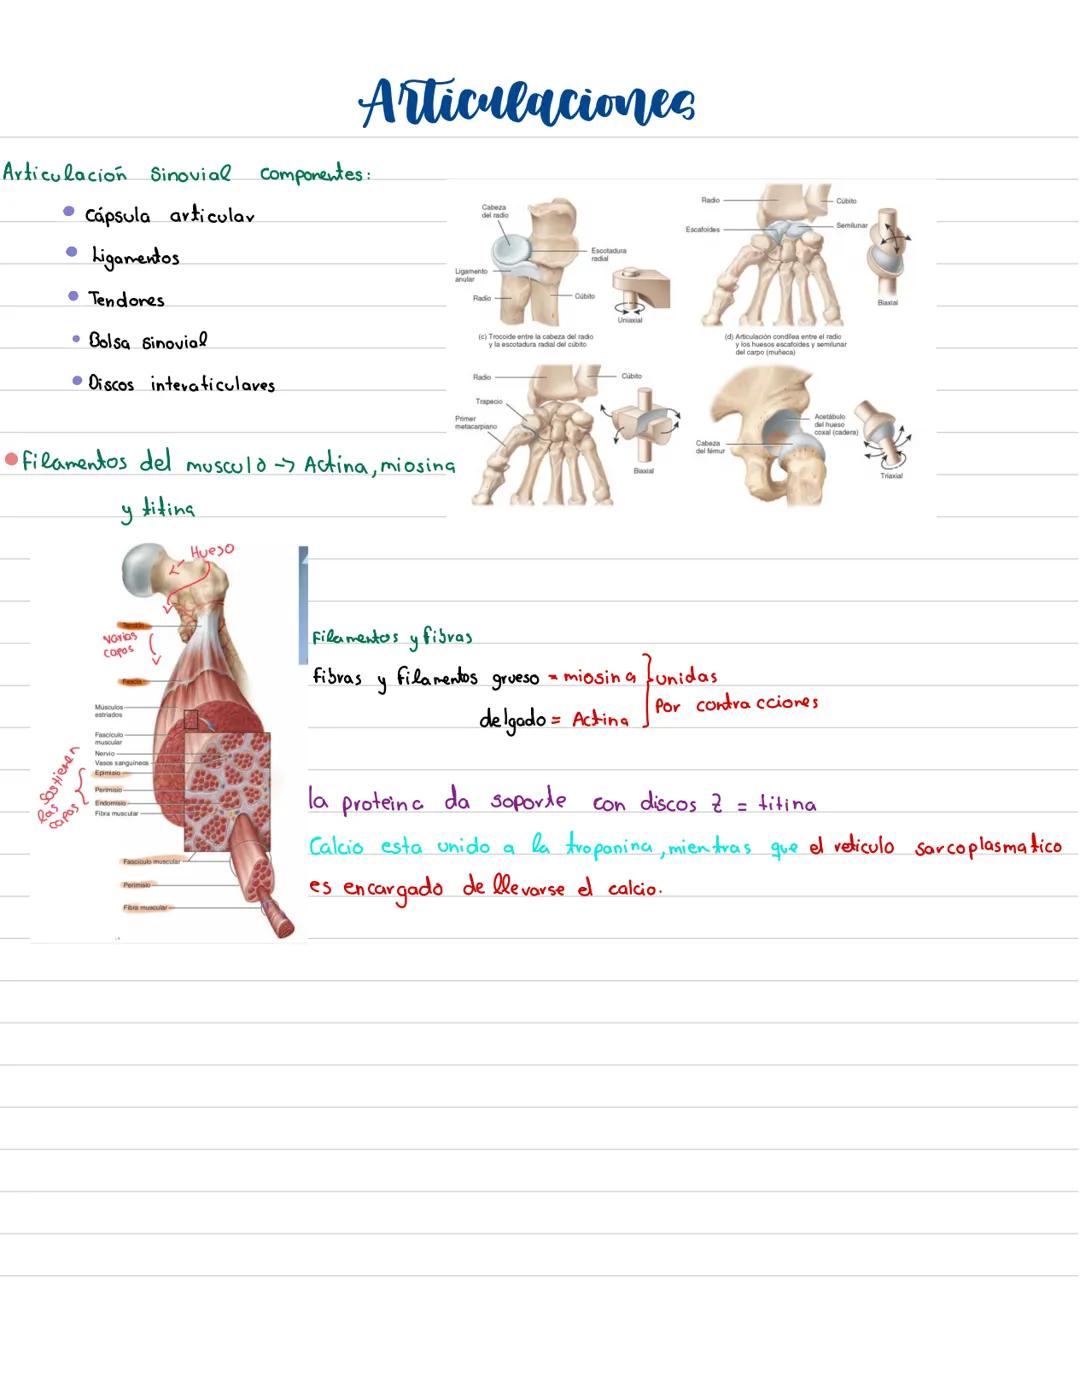 Articulaciones
Articulación Sinovial componentes:
Cápsula articular
Ligamentos
Tendores
Bolsa sinovial
Discos interaticulares
Filamentos del musculo -> Actina, miosina
y titina
Cabeza
del radio
Escotadura
radial
Ligamento
anular
Radio
Cúbito
Uniaxial
(c) Trocoide entre la cabeza del radio
y la escotadura radial del cúbito
Radio
Cúbito
Escafoides
Semilunar
Biaxial
(d) Articulación condílea entre el radio
y los huesos escafoides y semilunar
del carpo (muñeca)
Radio
Cúbito
Trapecio
Primer
metacarpiano
Biaxial
Acetábulo
del hueso
coxal (cadera)
Cabeza
del fémur
Triaxial
Hueso
Tendón
Varias
capas
Fascia
Músculos
estriados
Fascículo
muscular
Nervio
Vasos sanguíneos
Epimisio
Perimisio
Endomisio
Fibra muscular
Sostienen
las
capas
Fascículo muscular
Perimisio
Fibra muscular
Filamentos y fibras
fibras y filamentos grueso = miosina } unidas
delgado = Actina } Por contracciones
la proteina da soporte con discos Z = titina
Calcio esta unido a la troponina, mientras que el reticulo sarcoplasmatico
es encargado de llevarse el calcio.